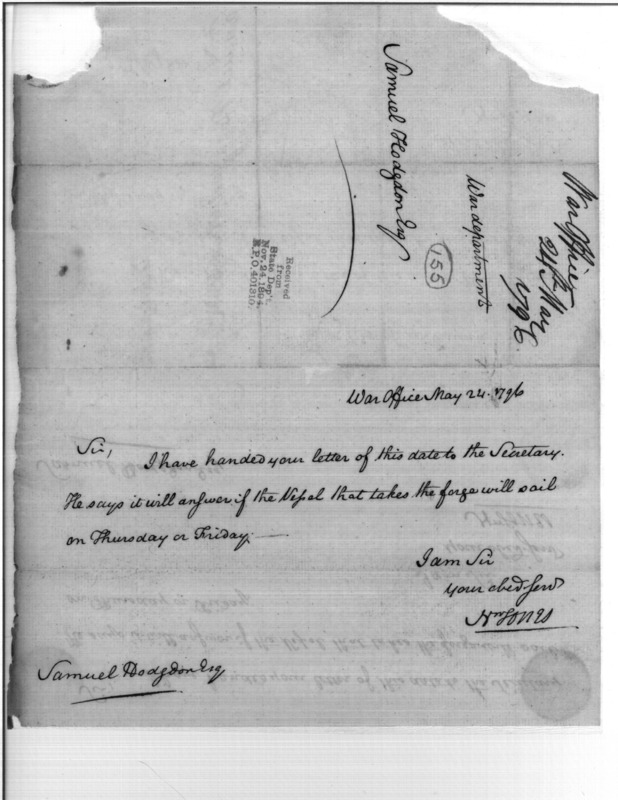 Samuel Hodgdon Esq
War department
155
War Office
24th May
1796
Received
from
State Dep't.
Nov. 24, 1894.
R.P.O. 401810.
War Office May 24. 1796
Sir,
I have handed your letter of this date to the Secretary.
He says it will answer if the Vessel that takes the forge will sail
on Thursday or Friday.
I am Sir
your obed Serv
Jones
Samuel Hodgdon Esq